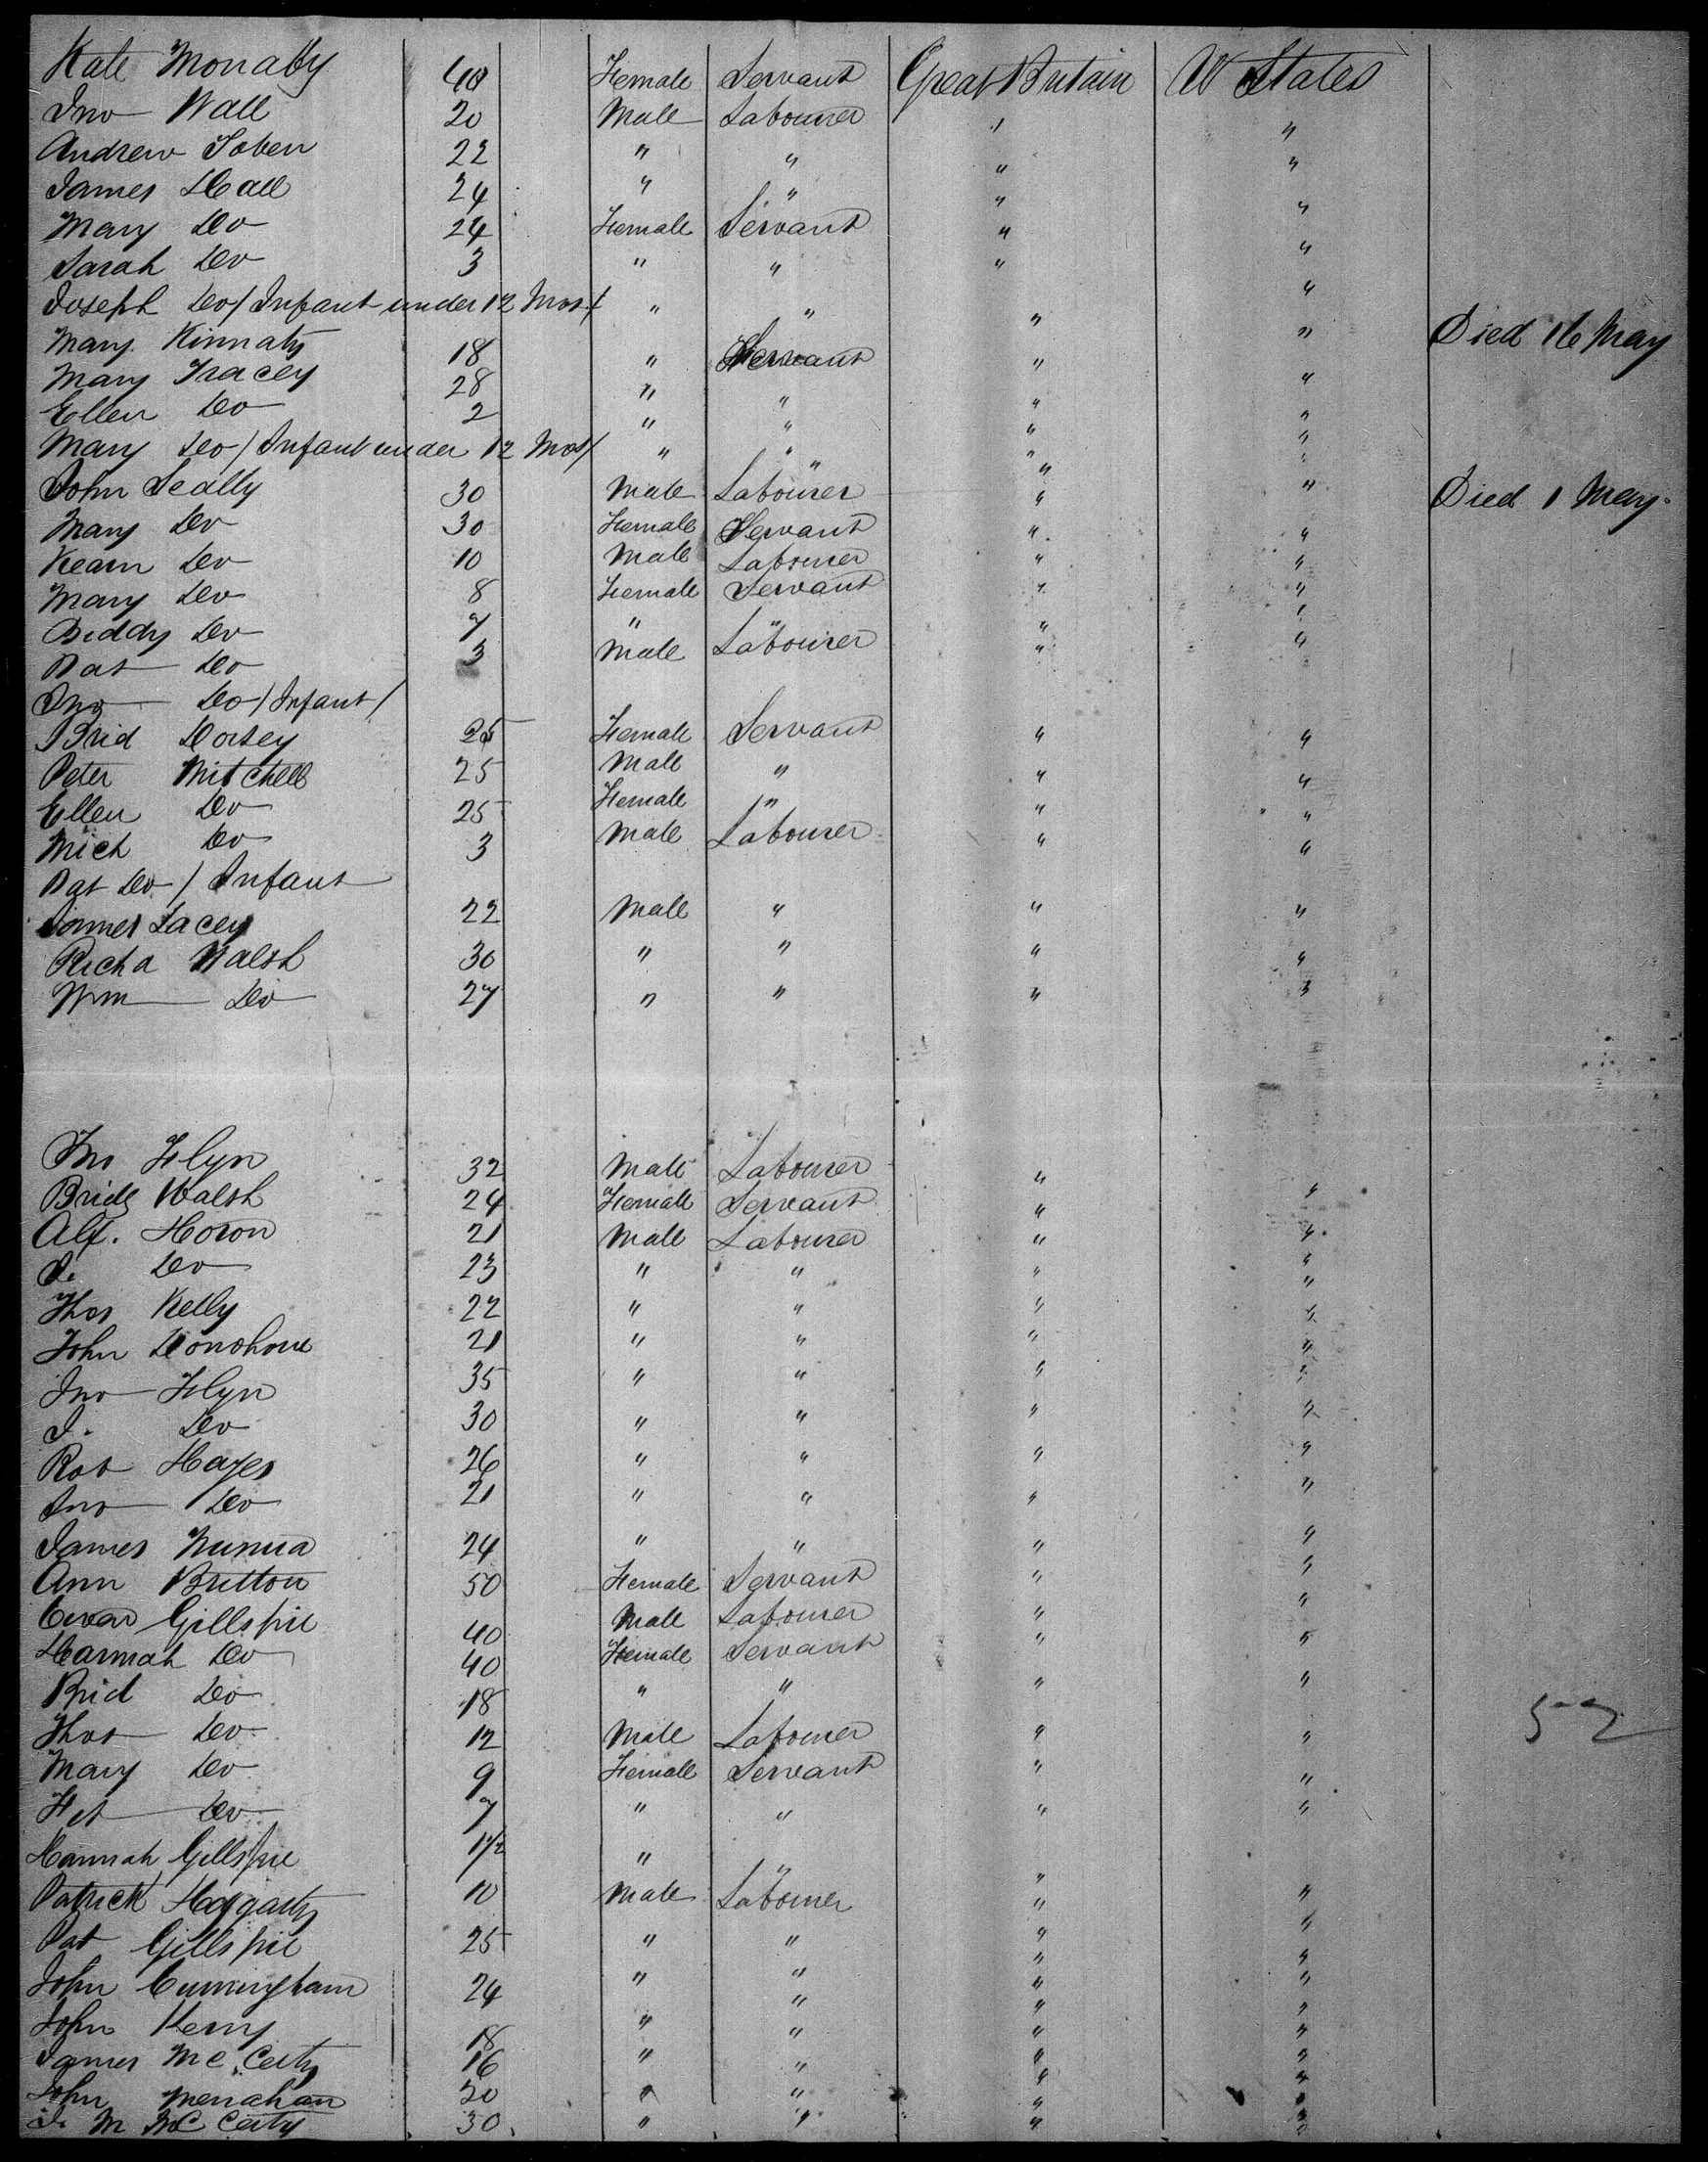 Kate Monally 40 Female Servant Great Britain U States
Jno Wall 20 Male Labourer " "
Andrew Toben 22 " " " "
James Hall 24 " " " "
Mary Do 24 Female Servant " "
Sarah Do 3 " " " "
Joseph Do / Infant under 12 Mos / " " " " Died 16 May
Mary 18 " Servant " "
Mary Tracey 28 " " " "
Ellen Do 2 " " " "
Mary Do / Infant under 12 Mos / " " " " Died 1 May
John Scally 30 Male Labourer " "
Mary Do 30 Female Servant " "
Kearn Do 10 Male Labourer " "
Mary Do 8 Female Servant " "
Biddy Do 7 " " " "
Pat Do 3 Male Labourer " "
Jno Do / Infant /
Brid Dorsey 25 Female Servant " "
Peter Mitchell 25 Male " " "
Ellen Do 25 Female " " "
Mich Do 3 Male Labourer " "
Pat Do / Infant
James Lacey 22 Male " " "
Richd Walsh 30 " " " "
Wm Do 27 " " " "
Jno Flyn 32 Male Labourer " "
Bridg Walsh 24 Female Servant " "
Alf. Horon 21 Male Labourer " "
J. Do 23 " " " "
Thos Kelly 22 " " " "
John Donohoue 21 " " " "
Jno Flyn 35 " " " "
J. Do 30 " " " "
Rob Hayes 26 " " " "
Jno Do 21 " " " "
James 24 " " " "
Ann Britton 50 Female Servant " "
Gillspie 40 Male Labourer " "
Hannah Do 40 Female Servant " "
Brid Do 18 " " " " 52
Thos Do 12 Male Labourer " "
Mary Do 9 Female Servant " "
Do 7 " " " "
Hannah Gillspie 1 1/2 " "
Patrick Hagarty 10 Male Labourer " "
Pat Gillspie 25 " " " "
John Cunningham 24 " " " "
John Kerny 18 " " " "
James McCarty 16 " " " "
John Menahan 20 " " " "
J. M McCarty 30 " " " "